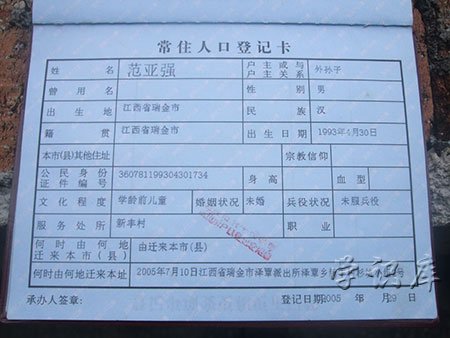 常住人口登记卡
姓名 范亚强 户主或与户主关系 外孙子
曾用名 性别 男
出生地 江西省瑞金市 民族 汉
籍贯 江西省瑞金市 出生日期 1993年4月30日
本市(县)其他住址 宗教信仰
公民身份证件编号 360781199304301734 身高 血型
文化程度 学龄前儿童 婚姻状况 未婚 兵役状况 未服兵役
服务处所 新丰村 职业
何时由何地迁来本市(县) 由迁来本市(县)
何时由何地迁来本址 2005年7月10日江西省瑞金市泽覃派出所泽覃乡 号
承办人签章: 登记日期:2005 年 月 日
学识库